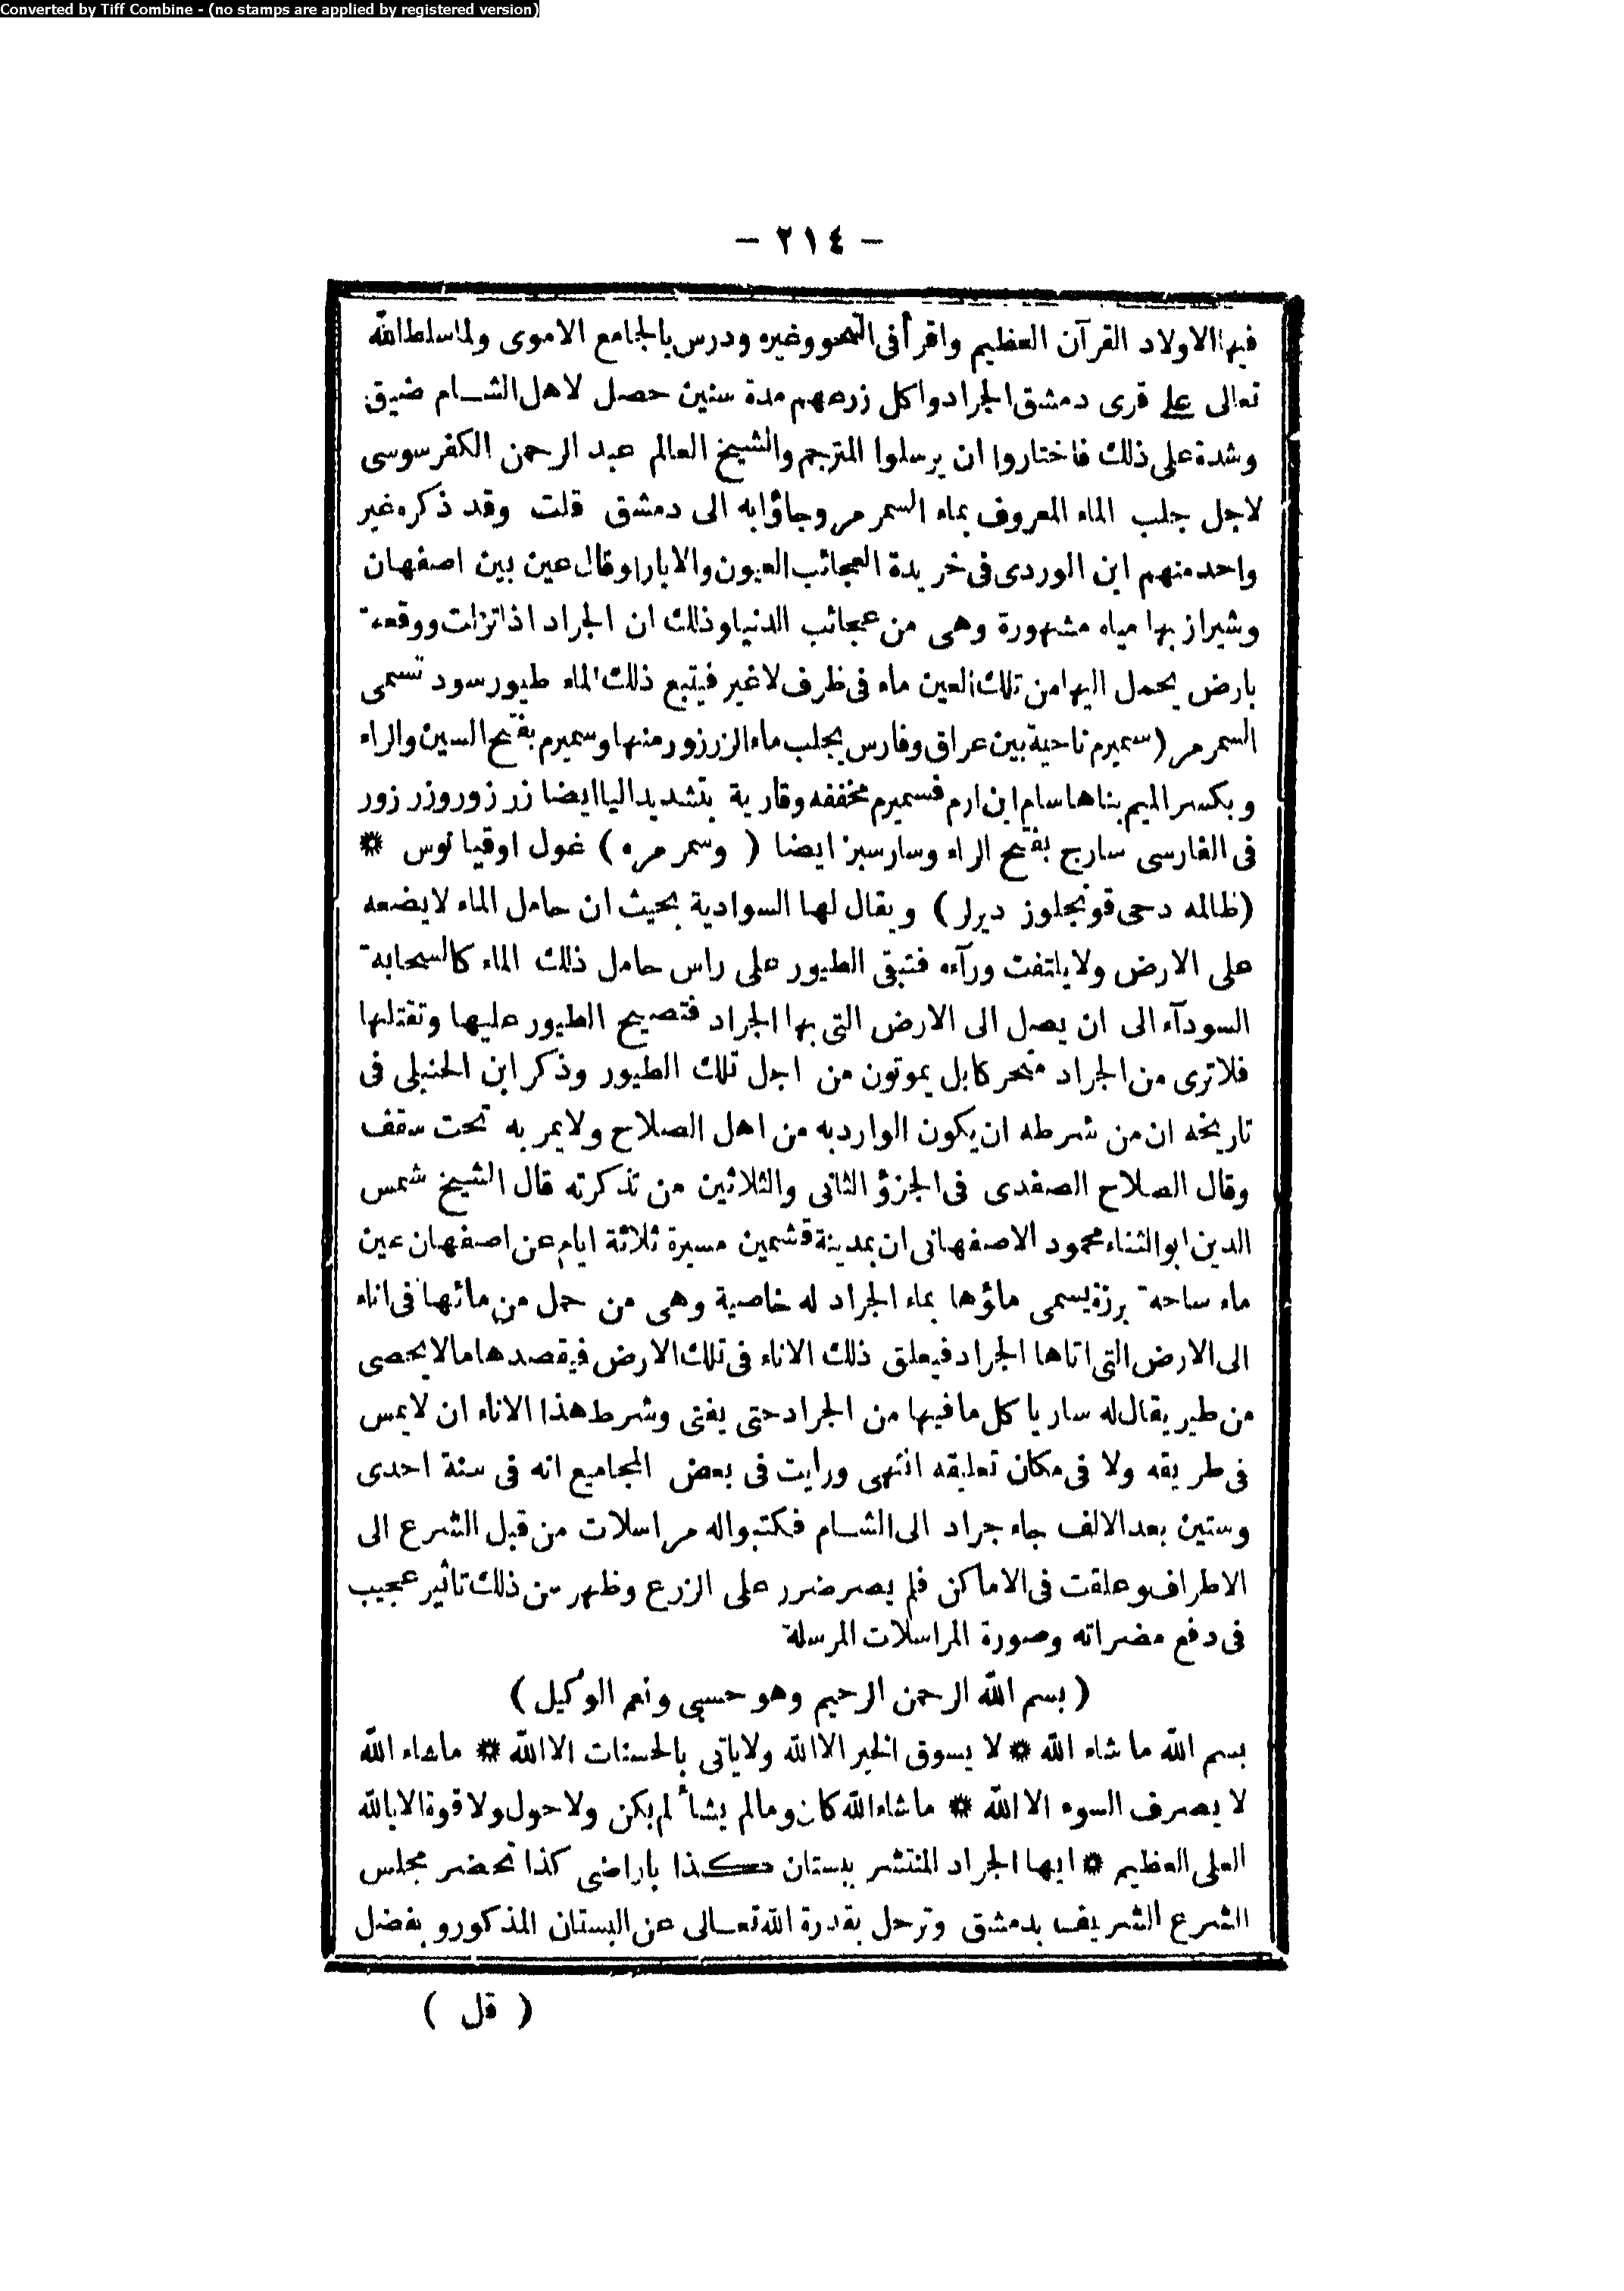 Converted by Tiff Combine - (no stamps are applied by registered version)
- ٢١٤ -
فيها الاولاد القرآن العظيم واقرأ فى النحو وغيره ودرس بالجامع الاموى ولما سلط الله
تعالى على قرى دمشق الجراد واكل زرعهم مدة سنين حصل لاهل الشام ضيق
وشدة على ذلك فاختاروا ان يرسلوا المترجم والشيخ العالم عبد الرحمن الكفرسوسى
لاجل جلب الماء المعروف بماء السمرمر وجاؤا به الى دمشق قلت وقد ذكره غير
واحد منهم ابن الوردى فى خريدة العجائب العيون والابار او قال عين بين اصفهان
وشيراز بها مياه مشهورة وهى من عجائب الدنيا وذلك ان الجراد اذا نزلت ووقعت
بارض يحمل اليها من تلك العين ماء فى ظرف لاغير فيتبع ذلك الماء طيور سود تسمى
السمرمر (سميرم ناحية بين عراق وفارس يجلب ماء الزرزور منها وسميرم بفتح السين والراء
وبكسر الميم بناها سام ابن ارم فسميرم مخففه وقارية بتشديد اليا ايضا زرزور وزرزور
فى الفارسى سارج بفتح الراء وسار سبز ايضا ( وسمرمره ) غول اوقيانوس *
(ظالمه دحى قونجلوز ديرلر) ويقال لها السوادية بحيث ان حامل الماء لايضعه
على الارض ولايلتفت ورآءه فتبقى الطيور على راس حامل ذلك الماء كالسحابة
السودآء الى ان يصل الى الارض التى بها الجراد فتصيح الطيور عليها وتقتلها
فلاترى من الجراد متحركا بل يموتون من اجل تلك الطيور وذكر ابن الحنبلى فى
تاريخه ان من شرطه ان يكون الوارد به من اهل الصلاح ولايمر به تحت سقف
وقال الصلاح الصفدى فى الجزؤ الثانى والثلاثين من تذكرته قال الشيخ شمس
الدين ابو الثناء محمود الاصفهانى ان بمدينة قشمين مسيرة ثلاثة ايام عن اصفهان عين
ماء ساحة برزة يسمى ماؤها بماء الجراد له خاصية وهى من حمل من مائها فى اناء
الى الارض التى اتاها الجراد فيعلق ذلك الاناء فى تلك الارض فيقصدها مالا يحصى
من طير يقال له سار ياكل مافيها من الجراد حتى يفنى وشرط هذا الاناء ان لايمس
فى طريقه ولا فى مكان تعليقه انتهى ورايت فى بعض المجاميع انه فى سنة احدى
وستين بعد الالف جاء جراد الى الشام فكتبوا له مراسلات من قبل الشرع الى
الاطراف وعلقت فى الاماكن فلم يصر ضرر على الزرع وظهر من ذلك تاثير عجيب
فى دفع مضراته وصورة المراسلات المرسلة
( بسم الله الرحمن الرحيم وهو حسبى ونعم الوكيل )
بسم الله ما شاء الله * لا يسوق الخير الا الله ولاياتى بالحسنات الا الله * ماشاء الله
لا يصرف السوء الا الله * ماشاء الله كان ومالم يشأ لم يكن ولاحول ولاقوة الا بالله
العلى العظيم * ايها الجراد المنتشر ببستان كذا باراضى كذا تحضر مجلس
الشرع الشريف بدمشق وترحل بقدرة الله تعالى عن البستان المذكور و بفضل
( قل )